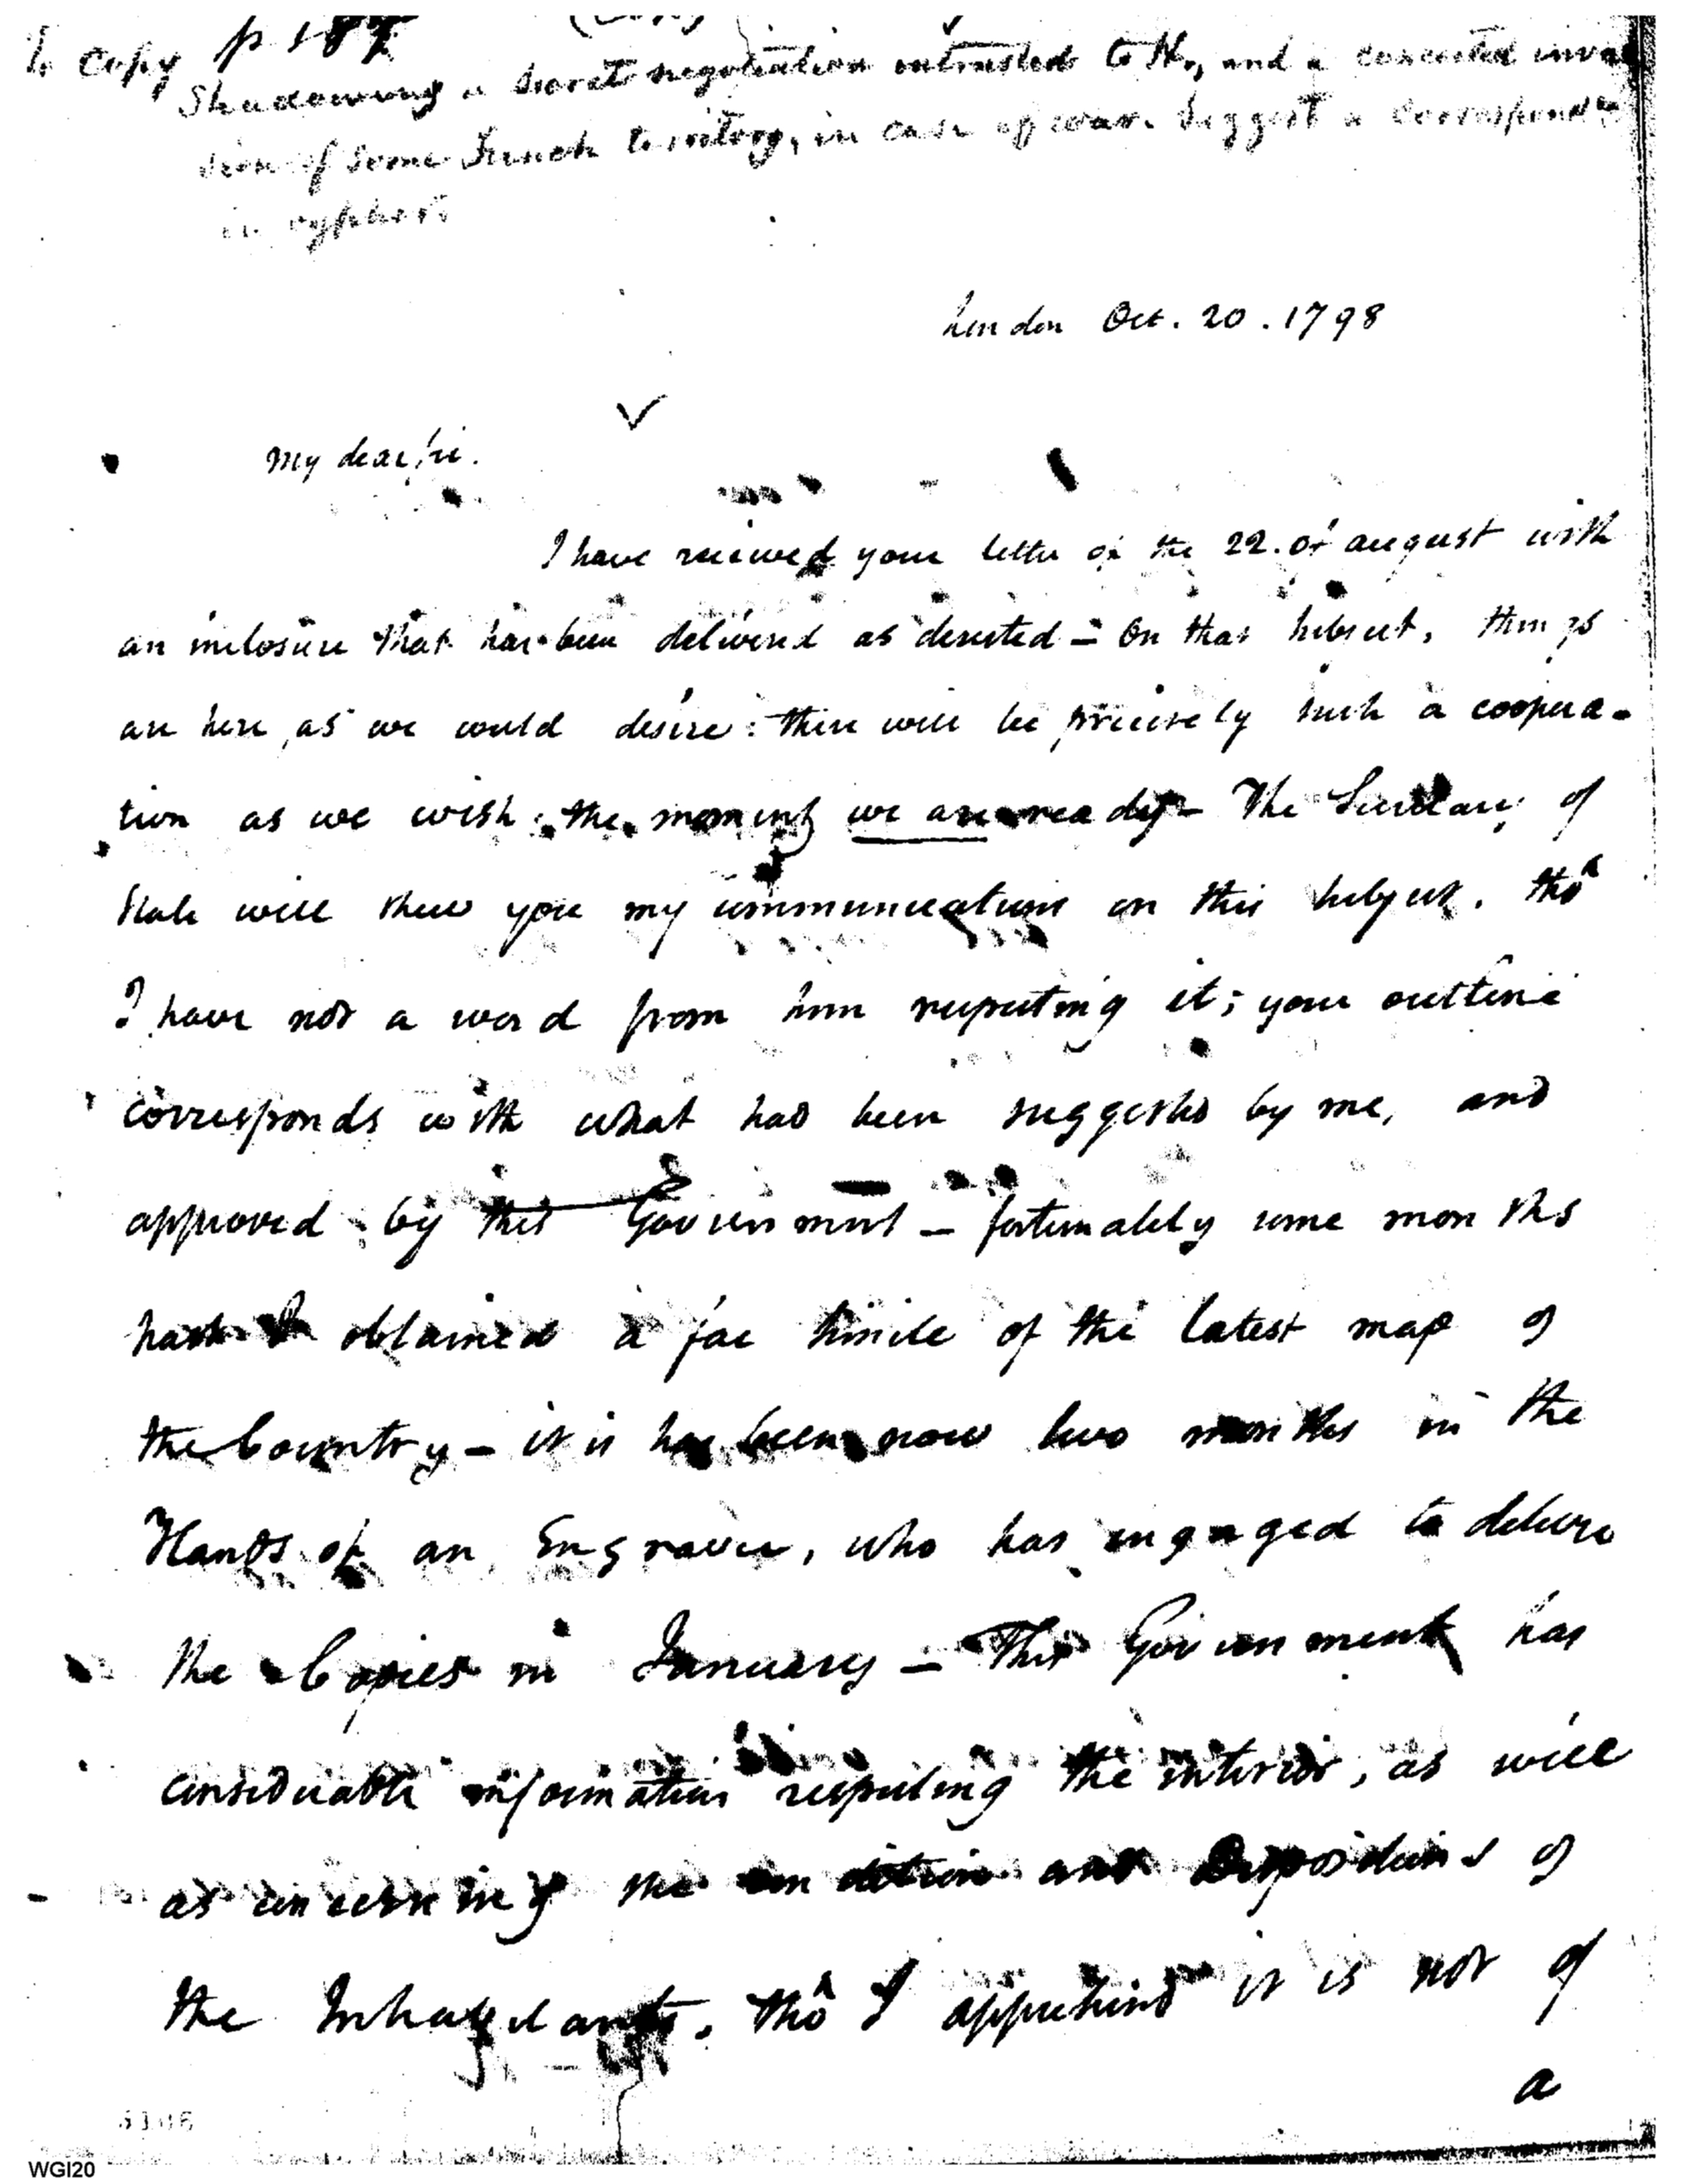 To copy p 187
Shadowing a secret negotiation entrusted to H., and a concerted inva
sion of some French territory, in case of war. Suggest a correspondce
in cypher.
London Oct. 20. 1798
My dear Sir.
I have received your letter of the 22. of august with
an inclosure that has been delivered as directed – On that subject, things
are here, as we could desire: there will be precisely such a coopera-
tion as we wish the moment we are ready – The Secretary of
State will shew you my communications on this subject, thô
I have not a word from him respecting it; your outline
corresponds with what had been suggested by me, and
approved by this Government – fortunately some months
obtained a fac simile of the latest map of
the Country – it is has been now two months in the
Hands of an Engraver, who has engaged to deliver
the Copies in January – This Government has
considerable information respecting the interior, as well
as concerning the condition and Dispositions of
the Inhabitants, thô I apprehend it is not of
a
WGI20